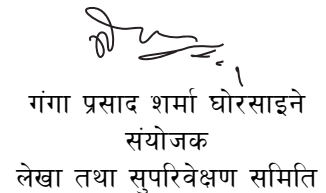 गंगा प्रसाद शर्मा घोरसाइने
संयोजक
लेखा तथा सुपरिवेक्षण समिति